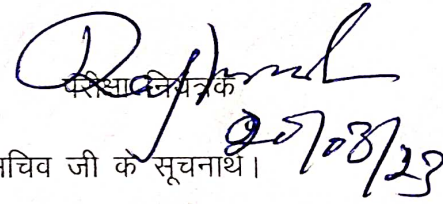 परीक्षा नियंत्रक
20/03/23
चिव जी के सूचनार्थ।